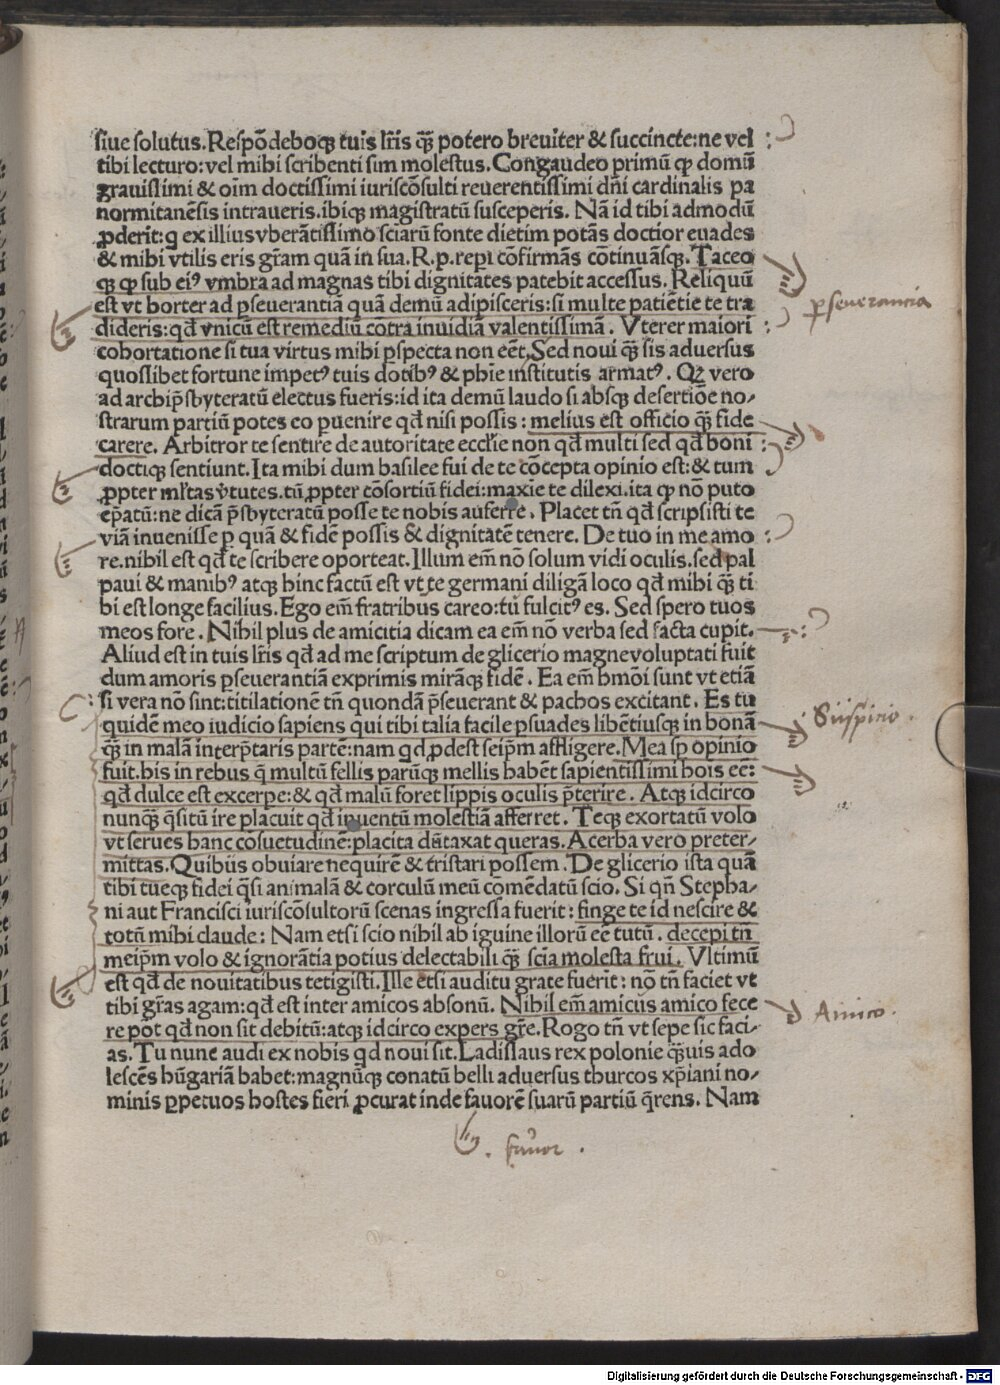 siue solutus. Respōdeboqꝫ tuis lr̄is qꝫ̄ potero breuiter & succincte: ne vel
tibi lecturo: vel mihi scribenti sim molestus. Congaudeo primū ꝙ domū
grauissimi & oīm doctissimi iuriscōsulti reuerentissimi dn̄i cardinalis pa
normitanēsis intraueris. ibiqꝫ magistratū susceperis. Nā id tibi admodū
ꝓderit: q ex illius vberātissimo sciarū fonte dietim potās doctior euades
& mihi vtilis eris gr̄am quā in sua. R. p. reperi cōfirmās cōtinuāsqꝫ. Taceo
qꝫ ꝙ sub eiꝰ vmbra ad magnas tibi dignitates patebit accessus. Reliquū
est vt horter ad ꝑseuerantiā quā demū adipisceris: si multe patiētie te tra
dideris: qd̄ vnicū est remediū cōtra inuidiā valentissimā. Vterer maiori
cohortatione si tua virtus mihi ꝑspecta non eēt. Sed noui qꝫ̄ sis aduersus
quoslibet fortune impetꝰ tuis dotibꝰ & phīe institutis armatꝰ. Qꝫ vero
ad archip̄sbyteratū electus fueris: id ita demū laudo si absqꝫ desertiōe no-
strarum partiū potes eo ꝑuenire qd̄ nisi possis: melius est officio qꝫ̄ fide
carere. Arbitror te sentire de autoritate ecclīe non qd̄ multi sed qd̄ boni
doctiqꝫ sentiunt. Ita mihi dum basilee fui de te cōcepta opinio est: & tum
ꝓpter ml̄tas v̄tutes. tū ꝓpter cōsortiū fidei: maxīe te dilexi. ita ꝙ nō puto
ep̄atū: ne dicā p̄sbyteratū posse te nobis auferre. Placet tn̄ qd̄ scripsisti te
viā inuenisse ꝑ quā & fidē possis & dignitatē tenere. De tuo in me amo
re. nihil est qd̄ te scribere oporteat. Illum em̄ nō solum vidi oculis. sed pal
paui & manibꝰ atqꝫ hinc factū est vt te germani diligā loco qd̄ mihi qꝫ̄ ti
bi est longe facilius. Ego em̄ fratribus careo: tu fulcitꝰ es. Sed spero tuos
meos fore. Nihil plus de amicitia dicam ea em̄ nō verba sed facta cupit.
Aliud est in tuis lr̄is qd̄ ad me scriptum de glicerio magne voluptati fuit
dum amoris ꝑseuerantiā exprimis mirāqꝫ fidē. Ea em̄ hmōi sunt vt etiā
si vera nō sint: titilationē tn̄ quondā p̄seuerant & pachos excitant. Es tu
quidē meo iudicio sapiens qui tibi talia facile ꝑsuades libētiusqꝫ in bonā
qꝫ̄ in malā interp̄taris partē: nam qd ꝓdest seip̄m affligere. Mea sꝑ opinio
fuit. his in rebus q̄ multū fellis parūqꝫ mellis habēt sapientissimi hoīs eē:
qd̄ dulce est excerpe: & qd̄ malū foret lippis oculis p̄terire. Atqꝫ idcirco
nunqꝫ̄ q̄situ ire placuit qd̄ inuentū molestiā afferret. Teqꝫ exortatū volo
vt serues hanc cōsuetudinē: placita dūtaxat queras. Acerba vero preter-
mittas. Quibus obuiare nequirē & tristari possem. De glicerio ista quā
tibi tueqꝫ fidei q̄si animalā & corculū meū cōmēdatū scio. Si qn̄ Stepha-
ni aut Francisci iuriscōsultorū scenas ingressa fuerit: finge te id nescire &
totū mihi claude: Nam etsi scio nihil ab iguine illorū eē tutū. decepi tn̄
meip̄m volo & ignorātia potius delectabili qꝫ̄ scia molesta frui. Vltimū
est qd̄ de nouitatibus tetigisti. Ille etsi auditu grate fuerit: nō tn̄ faciet vt
tibi gr̄as agam: qd̄ est inter amicos absonū. Nihil em̄ amicus amico fece
re pōt qd̄ non sit debitū: atqꝫ idcirco expers gr̄e. Rogo tn̄ vt sepe sic faci-
as. Tu nunc audi ex nobis qd noui sit. Ladislaus rex polonie qꝫ̄uis ado
lescēs hūgariā habet: magnūqꝫ conatū belli aduersus thurcos xp̄iani no-
minis ꝑpetuos hostes fieri ꝓcurat inde fauorē suarū partiū q̄rens. Nam
ꝑseuerancia
Suspicio.
Amico.
. fauor .
Digitalisierung gefördert durch die Deutsche Forschungsgemeinschaft - DFG